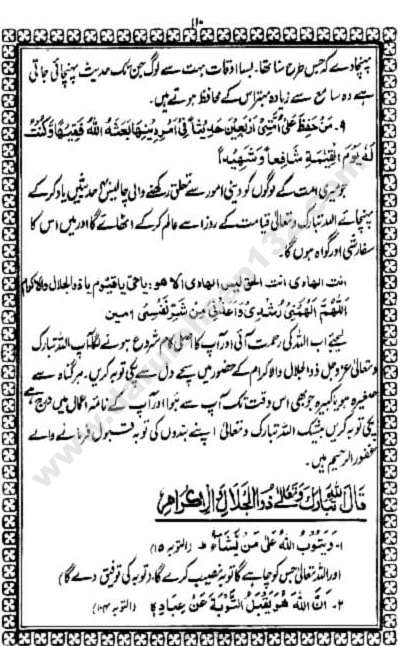 ۱۰
پہنچا دے کہ جس طرح سنا تھا۔ بسا اوقات بہت سے لوگ جن تک حدیث پہنچائی جاتی
ہے وہ سامع سے زیادہ بہتر اس کے محافظ ہوتے ہیں۔
۹۔ مَنْ حَفِظَ عَلٰی اُمَّتِیْ اَرْبَعِیْنَ حَدِیْثًا فِیْ اَمْرِ دِیْنِهَا بَعَثَهُ اللّٰهُ فَقِیْهًا وَّكُنْتُ
لَهٗ یَوْمَ الْقِیٰمَةِ شَافِعًا وَّشَهِیْدًا
جو میری امت کے لوگوں کو دینی امور سے تعلق رکھنے والی چالیس حدیثیں یاد کر کے
پہنچائے اللہ تبارک وتعالیٰ قیامت کے روز اسے عالم کر کے اٹھائے گا اور میں اس کا
سفارشی اور گواہ ہوں گا۔
انت الهادی انت الحق لیس الهادی الا هو: یا حی یا قیوم یا ذوالجلال والاکرام
اَللّٰهُمَّ اَلْهِمْنِیْ رُشْدِیْ وَاَعِذْنِیْ مِنْ شَرِّ نَفْسِیْ امین
لیجئے اب اللہ کی رحمت آئی اور آپ کا اصلی کام شروع ہونے لگا آپ اللہ تبارک
وتعالیٰ عزوجل ذوالجلال والاکرام کے حضور میں سچے دل سے پکی توبہ کریں۔ ہر گناہ سے
صغیرہ ہو یا کبیرہ جو بھی اس وقت تک آپ سے ہوا اور آپ کے نامۂ اعمال میں درج ہے
پکی توبہ کریں بیشک اللہ تبارک وتعالیٰ اپنے بندوں کی توبہ قبول فرمانے والے
غفور الرحیم ہیں۔
قَالَ اللّٰهُ تَبَارَكَ وَتَعَالٰی ذُوالْجَلَالِ وَالْاِكْرَامِ
۱۔ وَیَتُوْبُ اللّٰهُ عَلٰی مَنْ یَّشَآءُ ط (التوبہ ۱۵)
اور اللہ تعالیٰ جس کو چاہے گا توبہ نصیب کرے گا۔ (توبہ کی توفیق دے گا)
۲۔ اَنَّ اللّٰهَ هُوَ یَقْبَلُ التَّوْبَةَ عَنْ عِبَادِهٖ (التوبہ ۱۰۴)